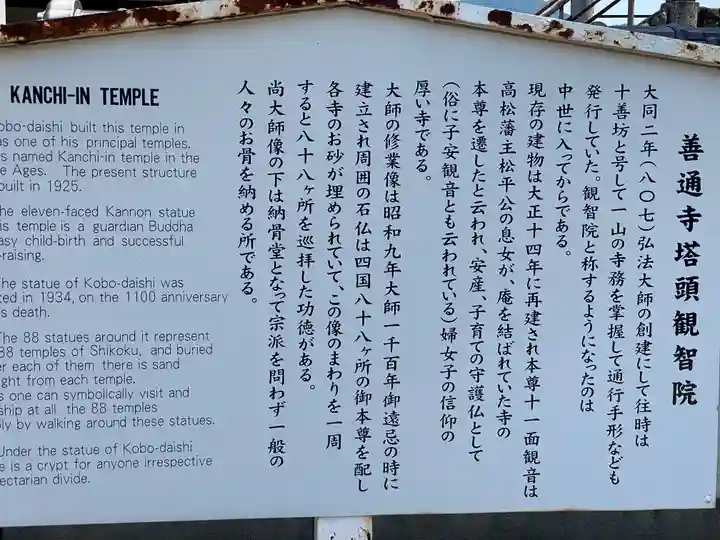 善通寺塔頭観智院
大同二年(八〇七)弘法大師の創建にして往時は
十善坊と号して一山の寺務を掌握して通行手形なども
発行していた。観智院と称するようになったのは
中世に入ってからである。
現存の建物は大正十四年に再建され本尊十一面観音は
高松藩主松平公の息女が、庵を結ばれていた寺の
本尊を遷したと云われ、安産、子育ての守護仏として
(俗に子安観音とも云われている)婦女子の信仰の
厚い寺である。
大師の修業像は昭和九年大師一千百年御遠忌の時に
建立され周囲の石仏は四国八十八ヶ所の御本尊を配し
各寺のお砂が埋められていて、この像のまわりを一周
すると八十八ヶ所を巡拝した功徳がある。
尚大師像の下は納骨堂となって宗派を問わず一般の
人々のお骨を納める所である。
KANCHI-IN TEMPLE
obo-daishi built this temple in
as one of his principal temples.
s named Kanchi-in temple in the
e Ages. The present structure
built in 1925.
he eleven-faced Kannon statue
is temple is a guardian Buddha
asy child-birth and successful
-raising.
The statue of Kobo-daishi was
ted in 1934, on the 1100 anniversary
s death.
The 88 statues around it represent
88 temples of Shikoku, and buried
er each of them there is sand
ght from each temple.
s one can symbolically visit and
ship at all the 88 temples
ly by walking around these statues.
Under the statue of Kobo-daishi
e is a crypt for anyone irrespective
ectarian divide.